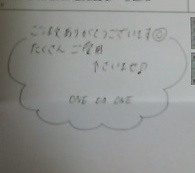 ご注文ありがとうございます☺
たくさん ご愛用
下さいませ♪
ONE DA ONE